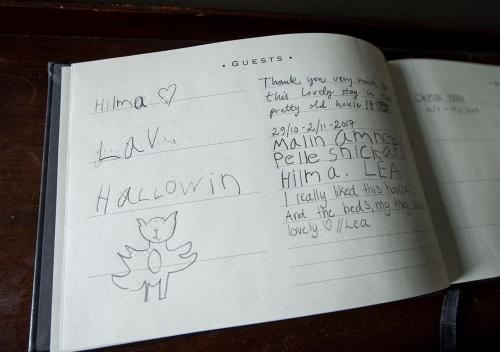 • GUESTS •
Hilma ♡
Hallowin
Thank you very much for
this lovely stay in this
pretty old house!
29/10-2/11-2017
Malin
Pelle Snickars
Hilma. LEA.
I really liked this house!
And the beds, mg they
lovely ♡ //Lea